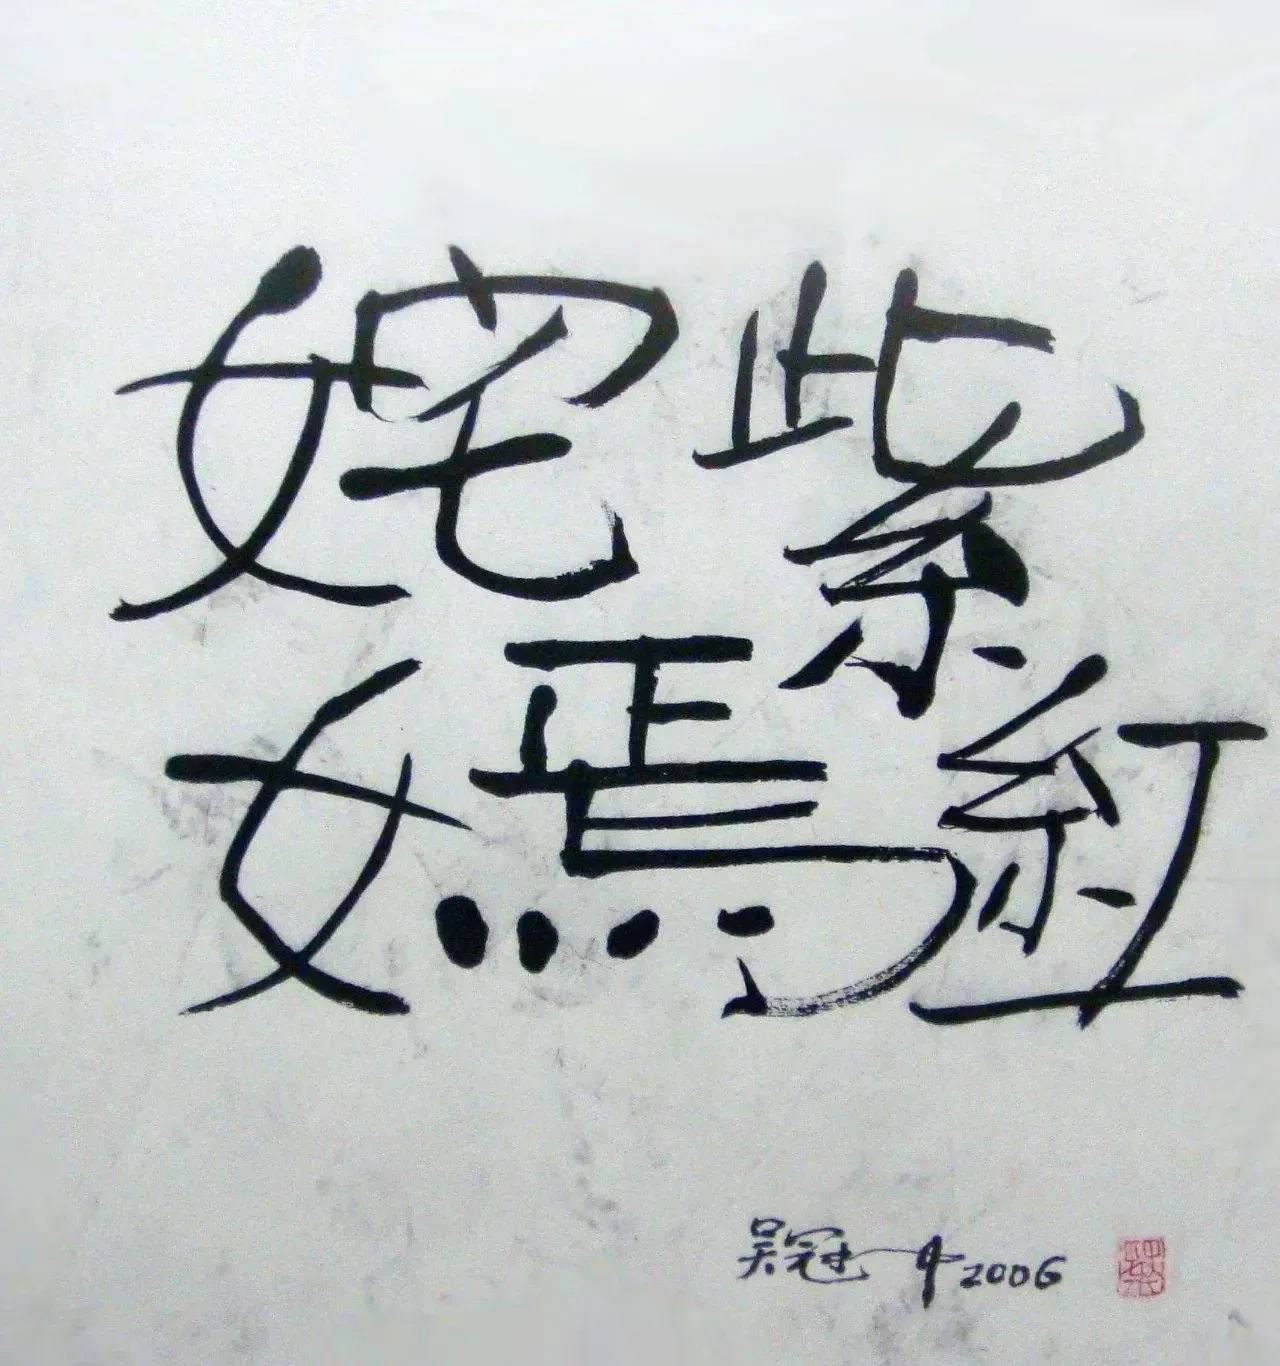 姹紫
嫣紅
吴冠中 2006